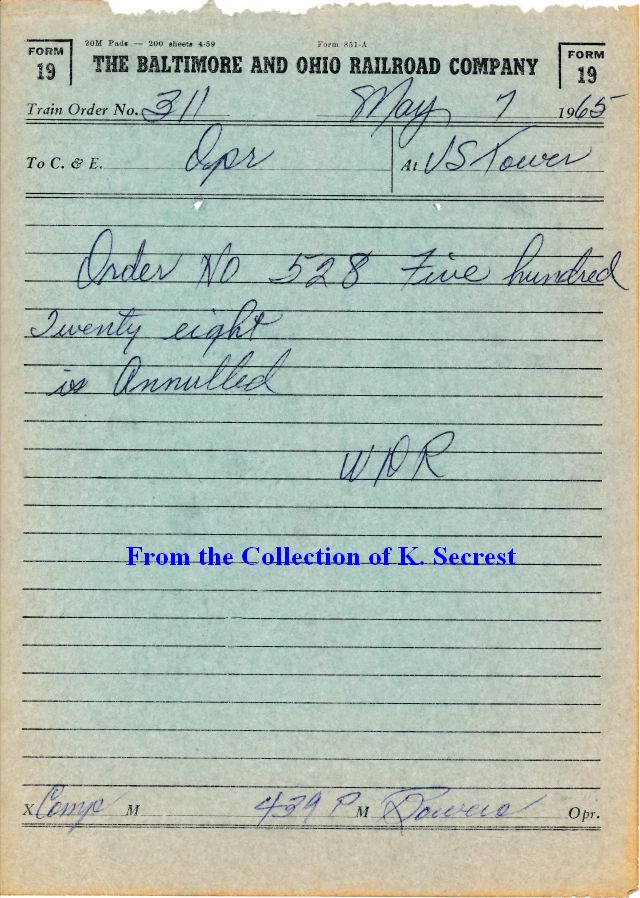 FORM 19
20M Pads — 200 sheets 4-59 Form 851-A
THE BALTIMORE AND OHIO RAILROAD COMPANY
FORM 19
Train Order No. 311 May 7 1965
To C. & E. Opr At US Tower
Order No 528 Five hundred
Twenty eight
is Annulled
WDR
From the Collection of K. Secrest
X Comp M 439 P M Opr.